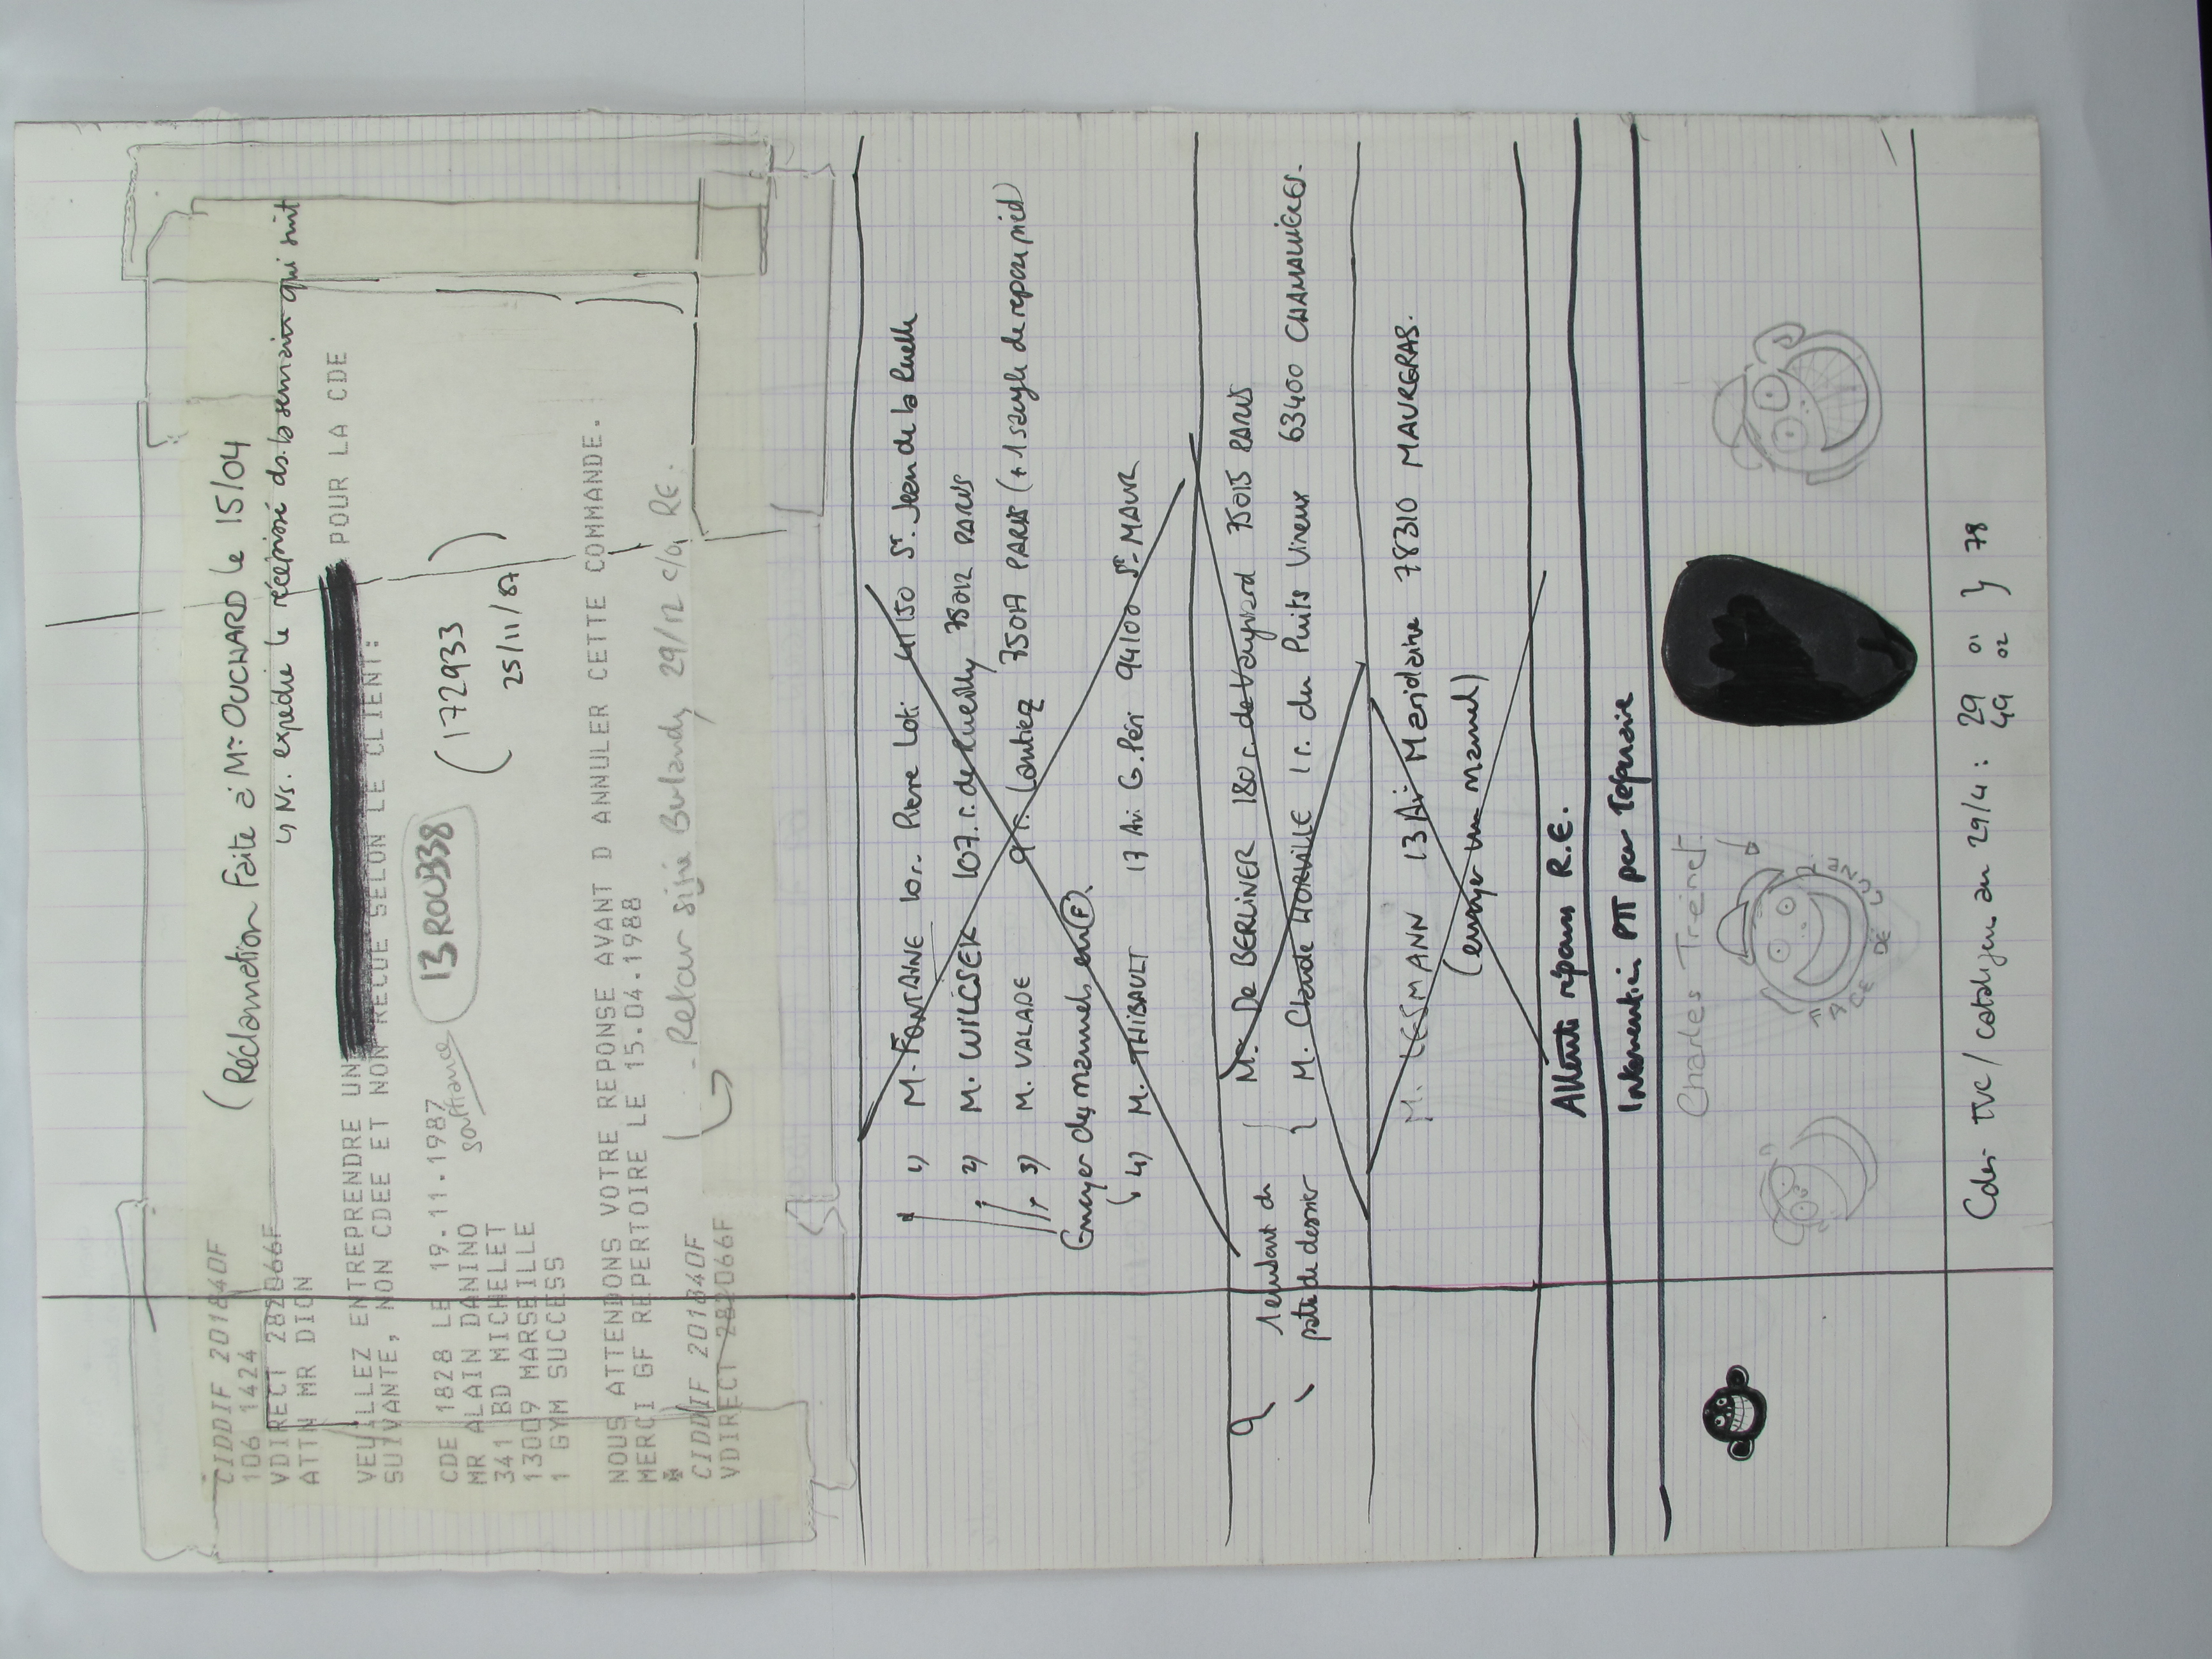 (Réclamation faite à Mr OUCHARD le 15/04
↳ Ns. expédie le récépissé ds. la semaine qui suit
CIDDIF 201840F
106 1424
VDIRECT 282066F
ATTN MR DION
VEUILLEZ ENTREPRENDRE UN POUR LA CDE
SUIVANTE, NON CDEE ET NON RECUE SELON LE CLIENT:
CDE 1828 LE 19.11.1987
MR ALAIN DANINO
341 BD MICHELET
13009 MARSEILLE
1 GYM SUCCESS
souffrance
13ROU338
(172933
25/11/87)
NOUS ATTENDONS VOTRE REPONSE AVANT D ANNULER CETTE COMMANDE.
MERCI GF REPERTOIRE LE 15.04.1988
- Retour signé 29/12 c/q RE.
CIDDIF 201840F
VDIRECT 282066F
1) M. FONTAINE 10 r. Pierre Loti 41150 St. Jean de la Ruelle
2) M. WILCSEK 107. r. de Reuilly 75012 PARIS
3) M. VALADE 9 r. Lantiez 75017 PARIS (+ 1 sangle de repose pied)
Envoyer des manuels en (F).
4) M. THIBAULT 17 Av. G. Péri 94100 St-MAUR
1 embout de patte de dernier
M. De BERLINER 180 r. de Vaugirard 75015 PARIS
M. Claude HORVILLE 1 r. du Puits Vineux 63400 CHAMALIÈRES.
M. LESMANN 13 Av. Maridaine 78310 MAUREPAS.
(envoyer un manuel)
Attente réponse R.E.
Intervention PTT par Telephone
Charles Treinet.
Cdes TVC / catalogem au 29/4 : 29 01 } 78
49 02